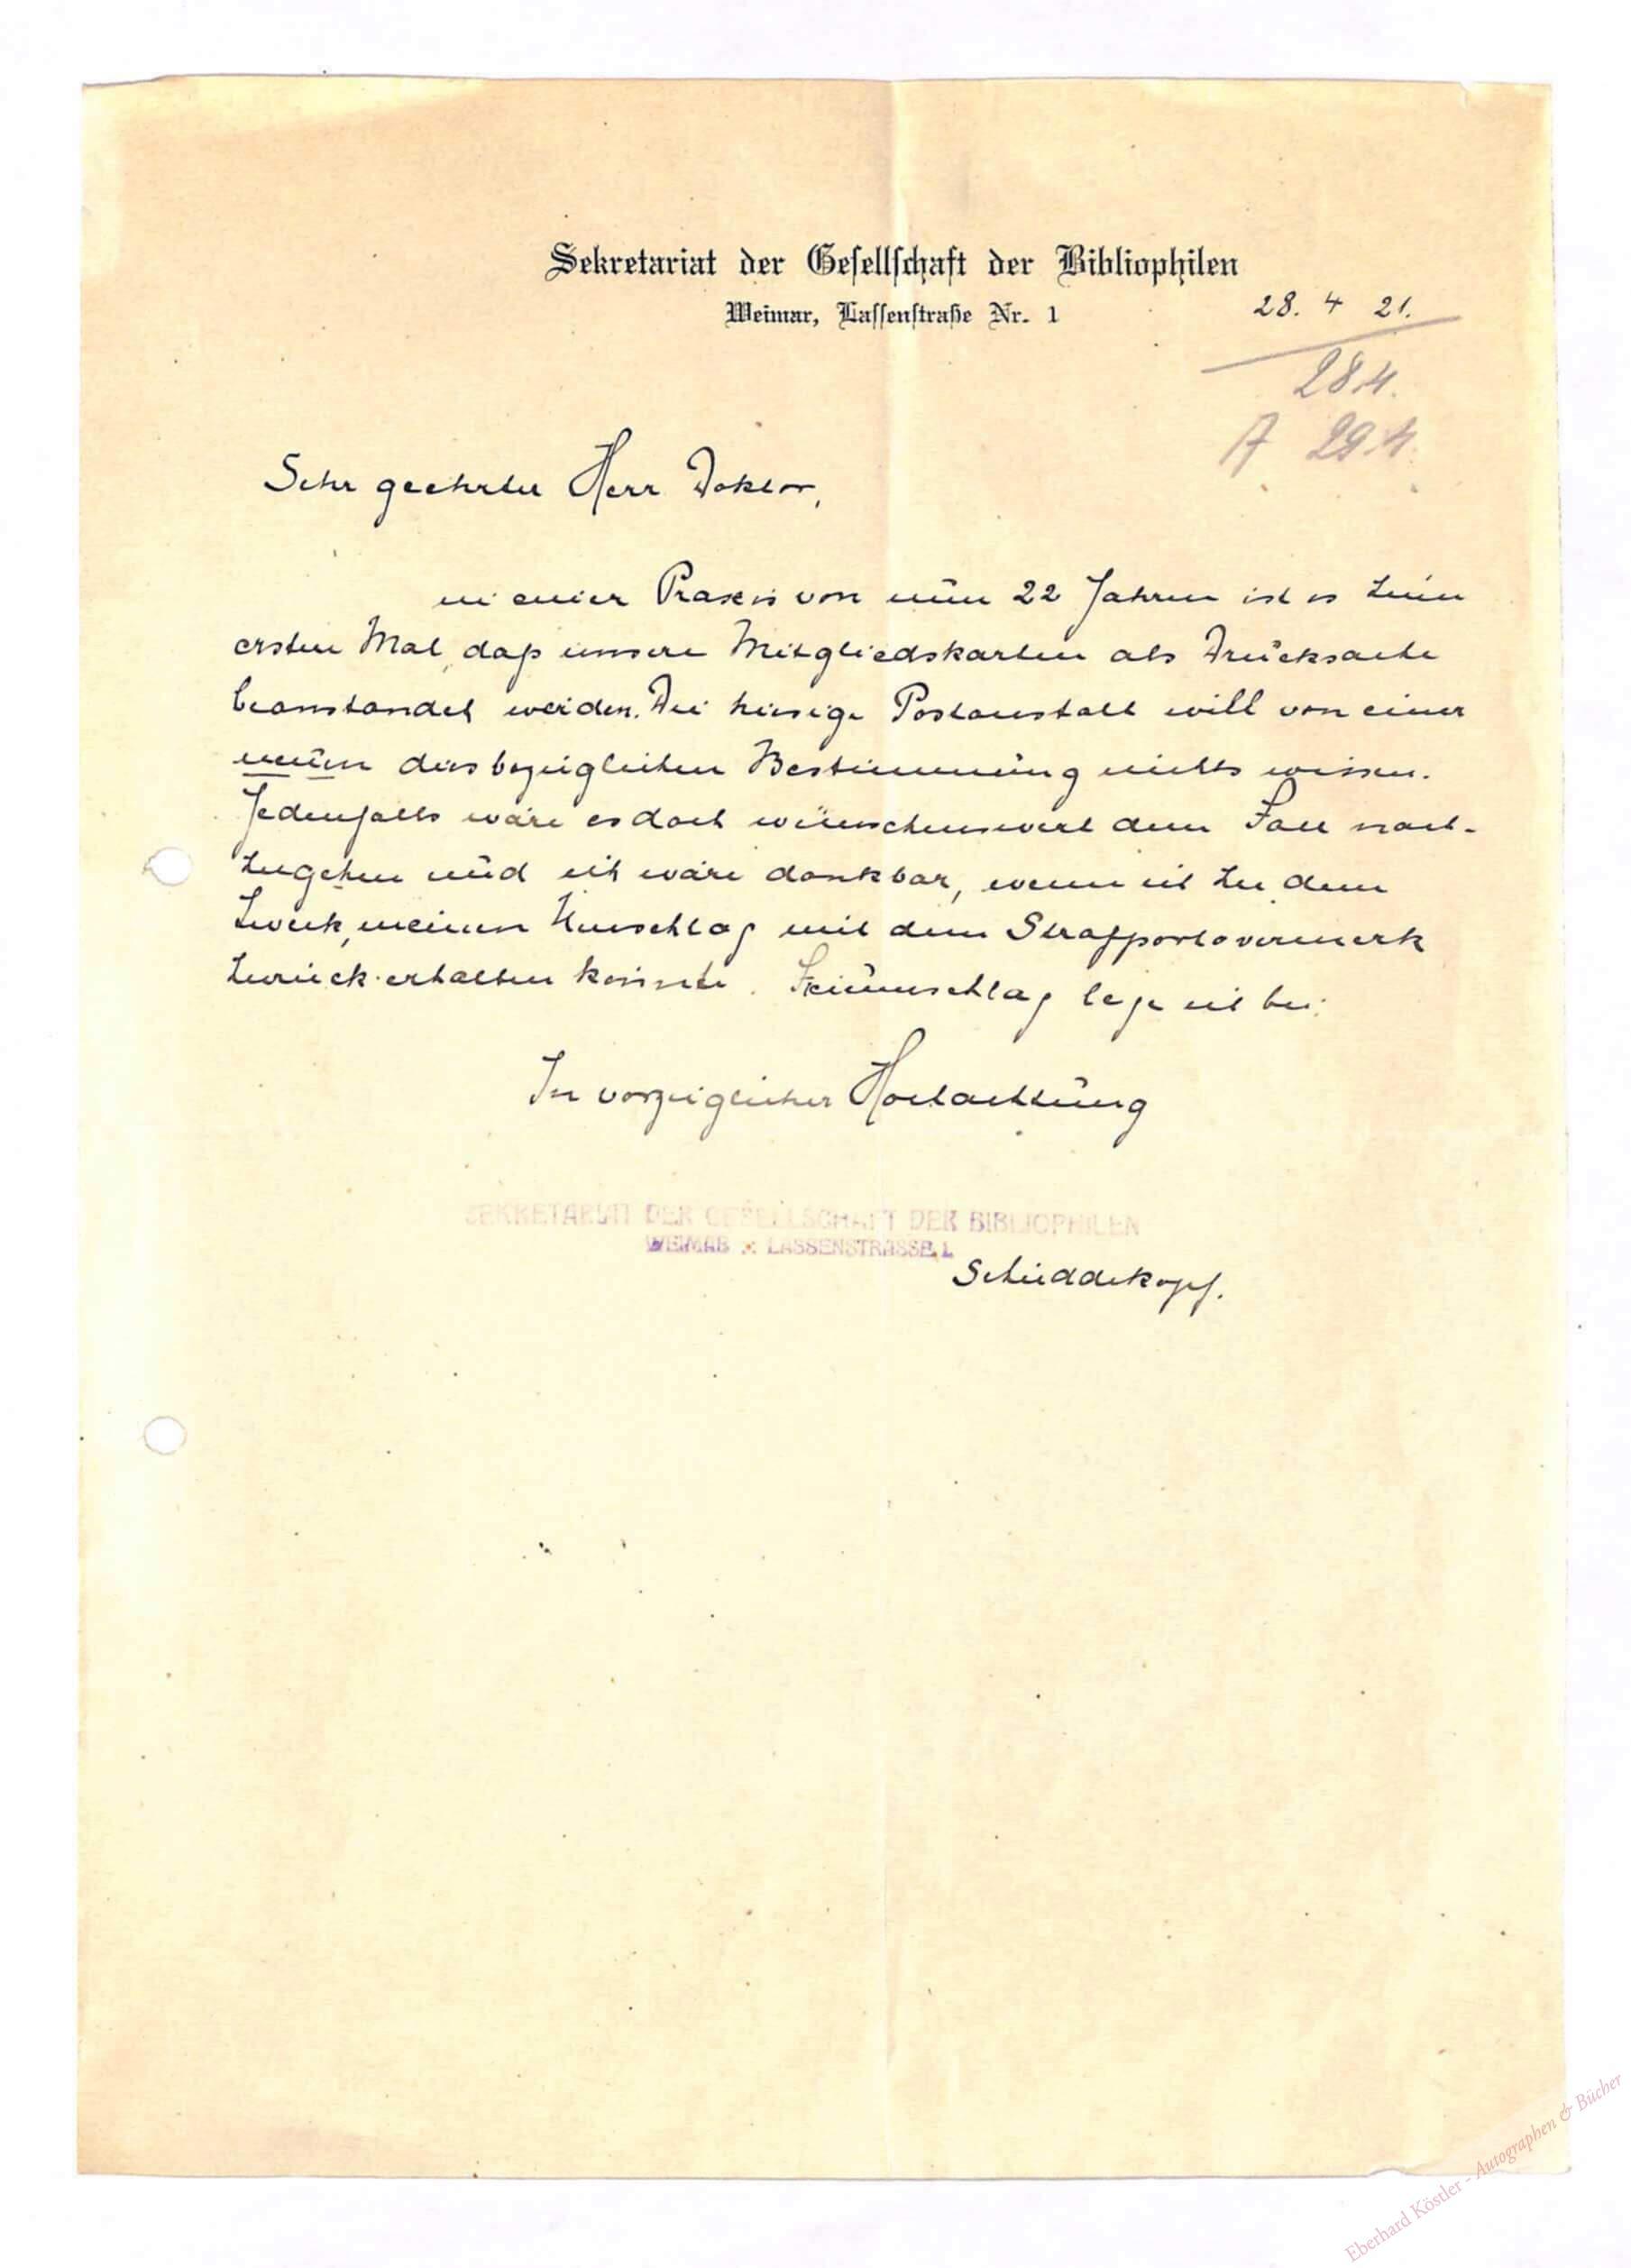 Sekretariat der Gesellschaft der Bibliophilen
Weimar, Lassenstraße Nr. 1
28. 4 21.
28.4.
A 29.4.
Sehr geehrter Herr Doktor,
in einer Praxis von nun 22 Jahren ist es zum
ersten Mal, daß unsere Mitgliedskarten als Drucksache
beanstandet werden. Die hiesige Postanstalt will von einer
neuen diesbezüglichen Bestimmung nichts wissen.
Jedenfalls wäre es doch wünschenswert dem Fall nach-
zugehen und ich wäre dankbar, wenn ich zu dem
Zweck, meinen Umschlag mit dem Strafportovermerk
zurück erhalten könnte. Freiumschlag lege ich bei.
In vorzüglicher Hochachtung
SEKRETARIAT DER GESELLSCHAFT DER BIBLIOPHILEN
WEIMAR : LASSENSTRASSE 1
Schüddekopf.
Eberhard Köstler - Autographen & Bücher